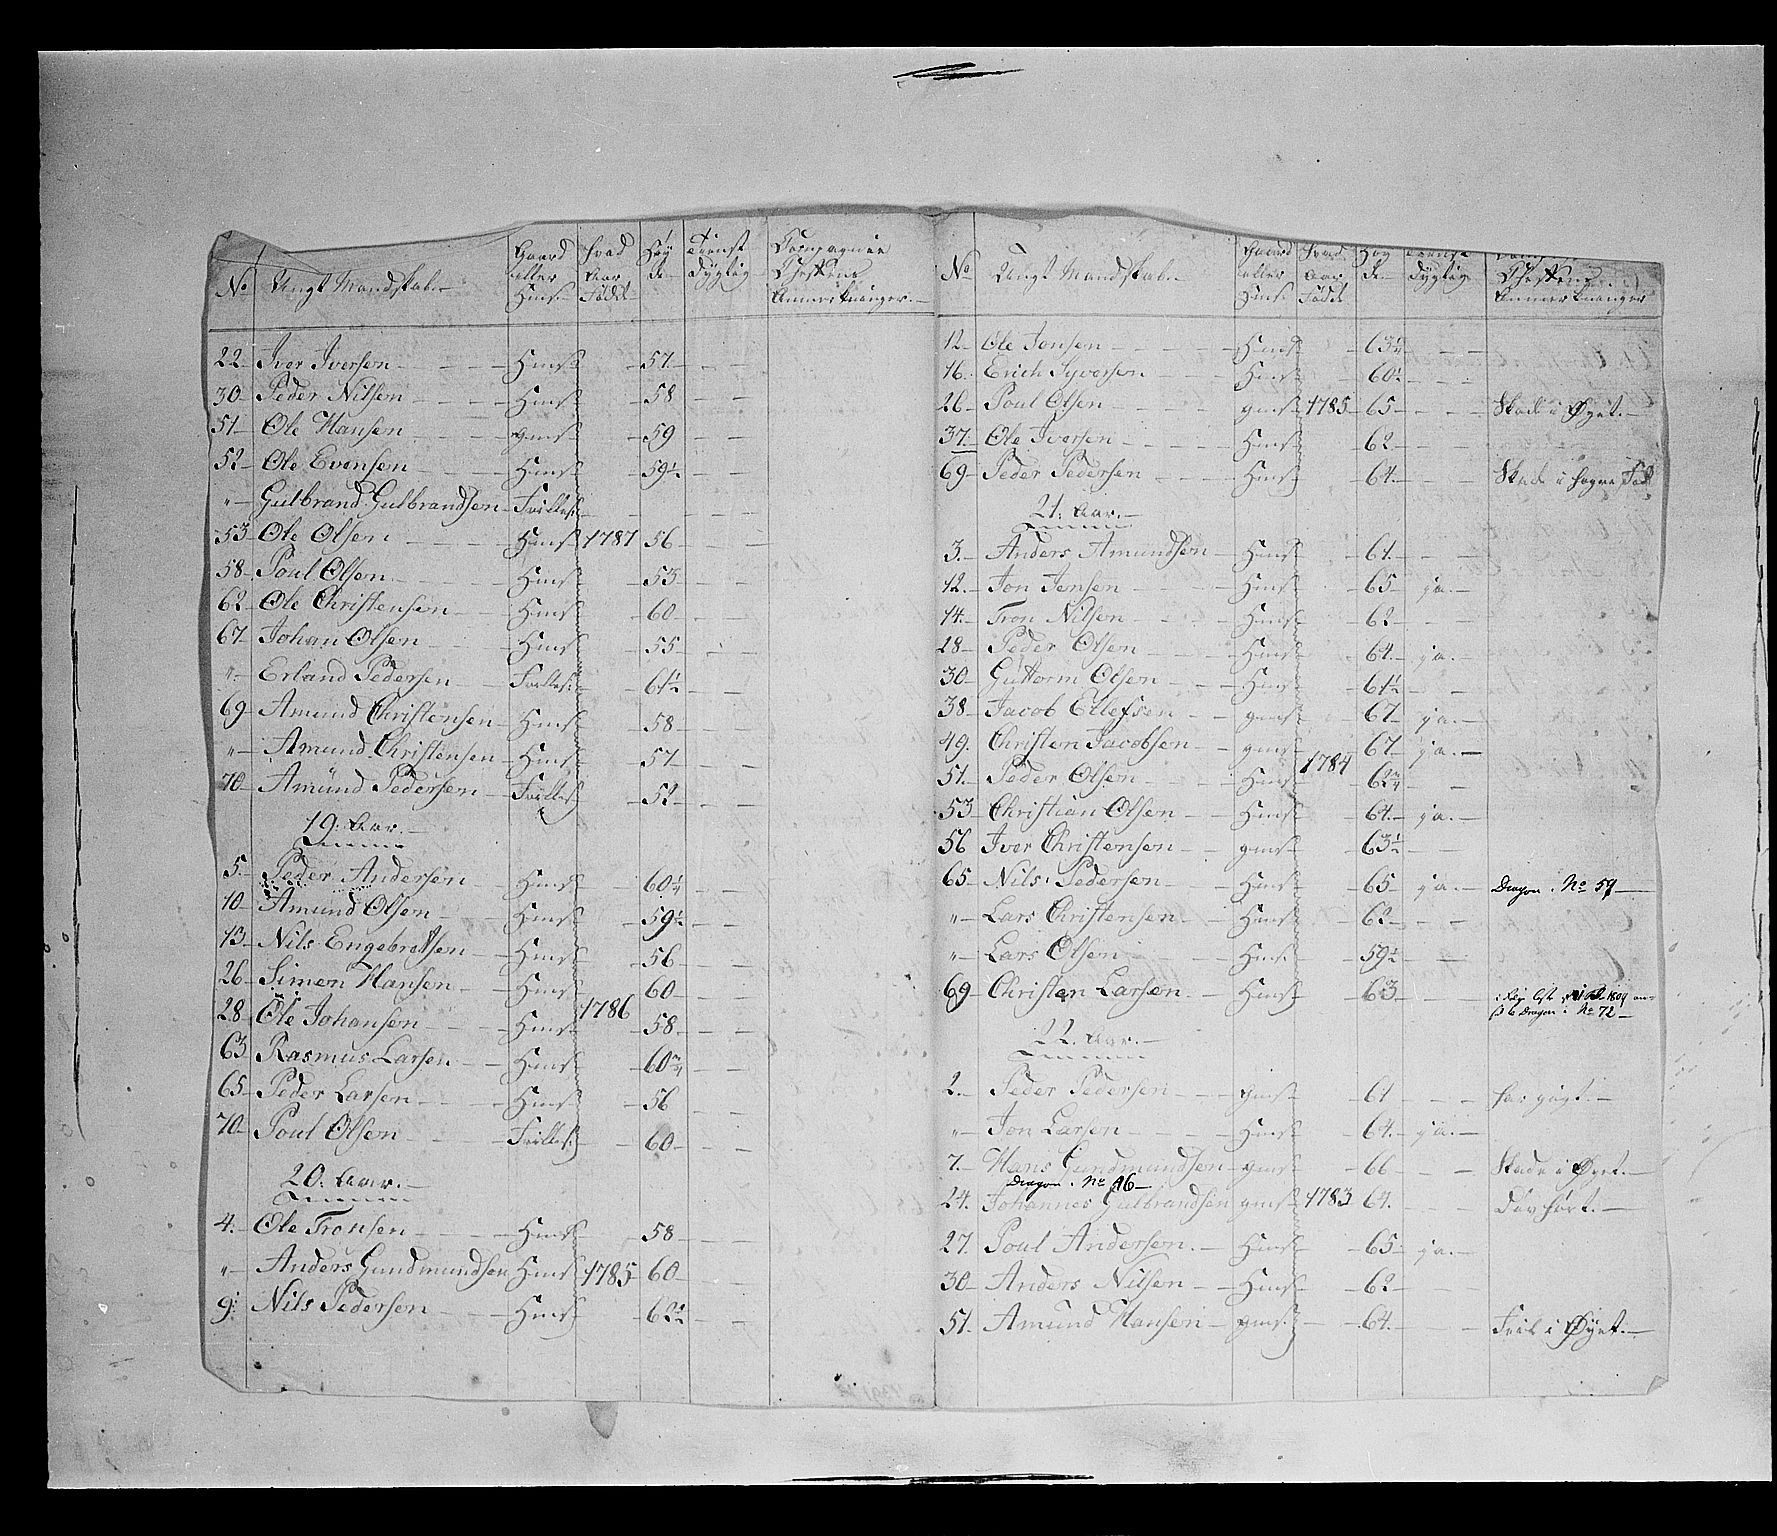 No Ungt Mandskab. Gaard eller Huus Hvad Aar Född Høy de Tienst dygtig Compagnie Chefens Anmerkninger.
22 Iver Iversen Huus 57
30 Peder Nilsen Huus 58
51 Ole Hansen gaus 59
52 Ole Evensen Huus 59½
" Gulbrand Gulbrandsen Frilles:
53 Ole Olsen Huus 1787 56
58 Poul Olsen Huus 53
62 Ole Christensen Huus 60
67 Johan Olsen Huus 55
" Erland Pedersen Frilles: 61½
69 Amund Christensen Huus 58
" Amund Christensen Huus 57
70 Amund Pedersen Frilles: 52
19: Aar.
5. Peder Andersen Huus 60¼
10 Amund Olsen Huus 59½
13 Nils Engebretsen Huus 56
26 Simen Hansen Huus 60
28 Ole Johansen Huus 1786 58
63 Rasmus Larsen Huus 60¾
65 Peder Larsen Huus 56
70 Poul Olsen Frilles: 60
20: Aar.
4. Ole Tronsen Huus 58
" Anders Gundmundsen Huus 1785 60
9: Nils Pedersen Huus 62½
No Ungt Mandskab. Gaard eller Huus Hvad Aar Född Høy de Tienst dygtig Chefens Anmerkninger
12 Ole Jonsen Huus 63½
16. Erich Syversen Huus 60½
26 Poul Olsen gaus 1785 65 Skade i Øyet.
37. Ole Iversen Huus 62
69 Peder Pedersen Huus 64. Skade i høyre Fod
21: Aar.
3. Anders Amundsen Huus 61.
12. Jon Jensen Huus 65 ja.
14. Tron Nilsen Huus 62
28 Peder Olsen Huus 64. ja.
30 Guttorm Olsen Huus 61½
38. Jacob Ellefsen gaus 67 ja.
49. Christen Jacobsen gaus 67 ja.
51. Peder Olsen Huus 1784 62¾
53 Christian Olsen Huus 64. ja.
56 Iver Christensen gaus 63½
65 Nils Pedersen Huus 65 ja. Dragon. No 59
" Lars Christensen Huus 62
" Lars Olsen Huus 59½
69 Christen Larsen Huus 63 1809
Dragon No 72
22. Aar.
2. Peder Pedersen gaus 61 har gigt.
" Jon Larsen Huus 64. ja.
7. Hans Gundmundsen gaus 66 Skade i Øyet.
Dragon. No 16
24. Johannes Gulbrandsen gaus 1783 64. Døvhørt.
27. Poul Andersen. Huus 65 ja.
30 Anders Nilsen Huus 62
51. Amund Hansen gaus 64. Feil i Øyet.